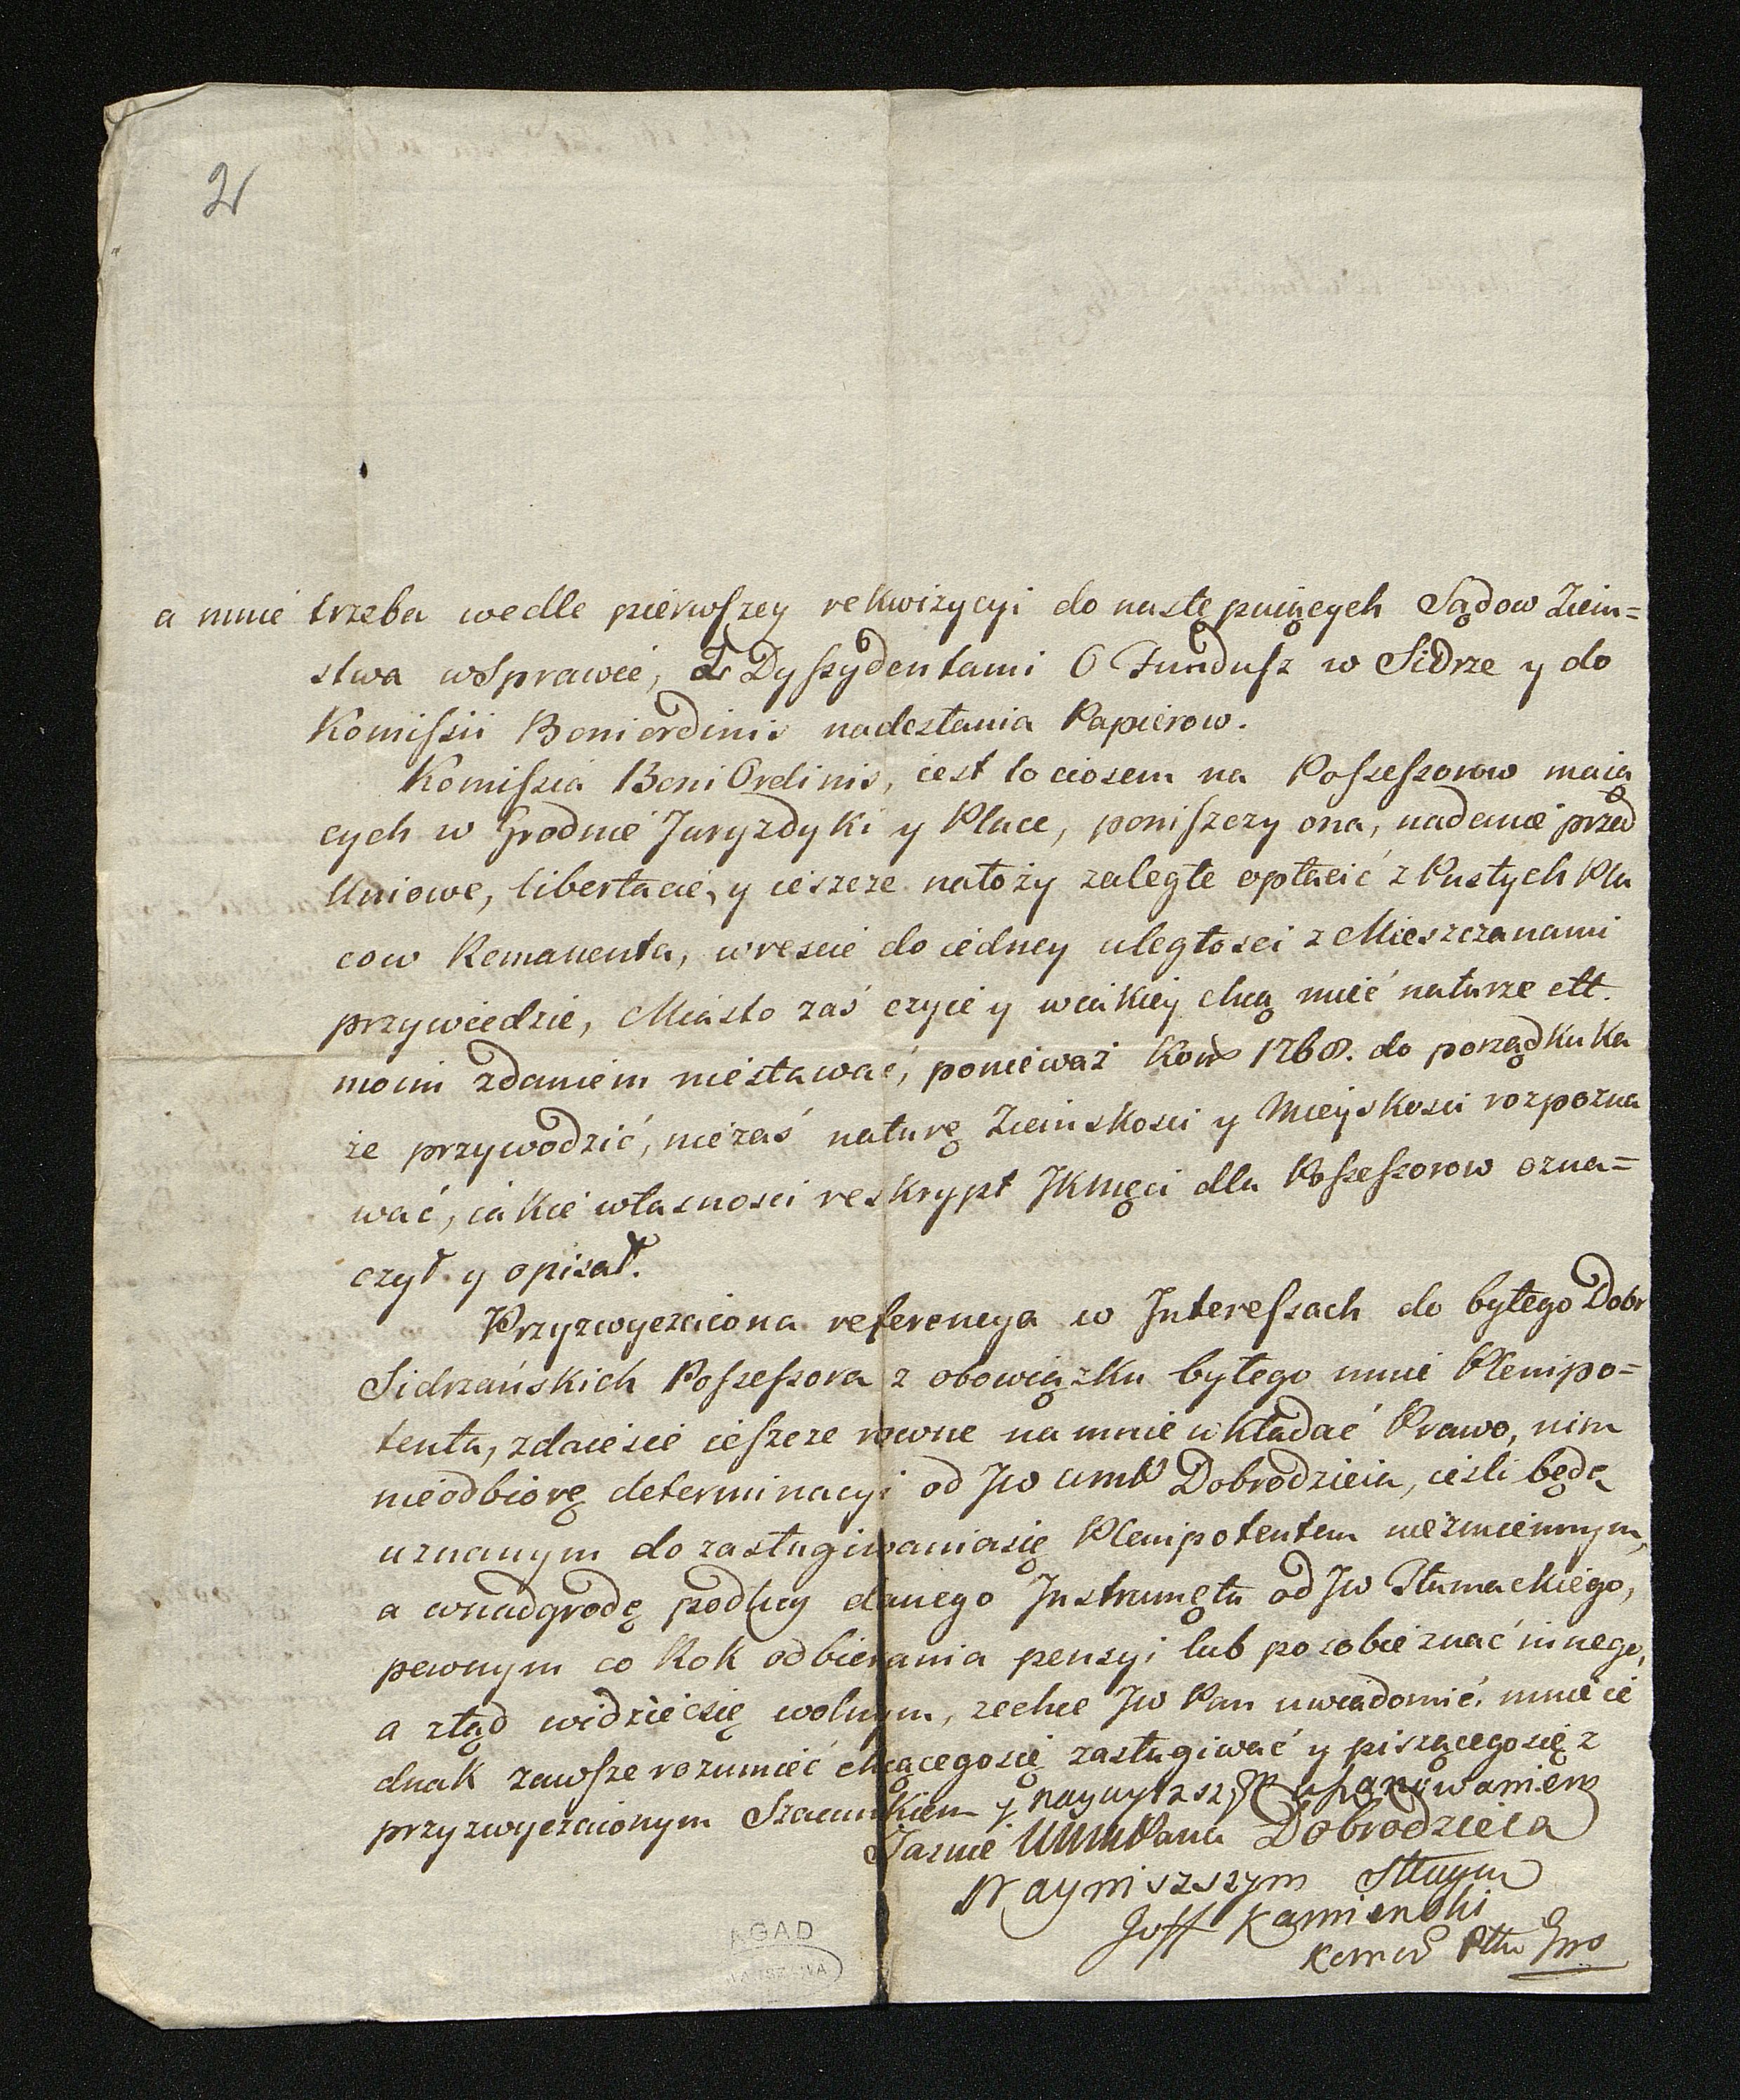 2
a mnie trzeba wedle pierwszey rekwizycyi do następuiących Sądow Ziem=
stwa wsprawie, z Dyssydentami O Fundusz w Sidrze y do
Komissii Boniordinis nadesłania Papierow.
Komissia Boni Ordinis, iest to ciosem na Possessorow maią
cych w Grodnie Juryzdyki y Place, poniszczy ona, nadanie przed
Uniowe, libertacie, y ieszcze nałoży zaległe opłacić z Pustych Pla
cow Remanenta, wrescie do iedney uległosci z Mieszczanami
przywiedzie, Miasto zaś czyie y wiakiey chcą mieć naturze ett.
moim zdaniem niestawać, ponieważ Kons 1768. do porządku ka
że przywodzić, niezaś naturę Ziemskosci y Mieyskosci rozpozna
wać, iakie własnosci reskrypt JKMści dla Possessorow ozna=
czył y opisał.
Przyzwyczaiona referencya w Interessach do byłego Dobr
Sidrzańskich Possessora z obowiązku byłego mnie Plenipo=
tenta, zdaiesie ieszcze rowne na mnie wkładać Prawo, nim
nieodbiorę determinacyi od Jw WmP Dobrodzieia, ieśli będę
uznanym do zasługiwaniasię Plenipotentem niezmiennym,
a wnadgrodę podług danego Instrumętu od Jw Tłumackiego,
pewnym co Rok odbierania pensyi lub po sobie znać innego,
a ztąd widziećsię wolnym, zechce Jw Pan uwiadomić. mnie ie
dnak zawsze rozumieć chcącegosię zasługiwać y piszącegosię z
przyzwyczaionym Szacunkiem y naywyzszym uszanowaniem
Jasnie WWmPana Dobrodzieia
Nayniszszym Sługą
Joff Kamienski
Komor Pttu Gro
AGAD
WARSZAWA